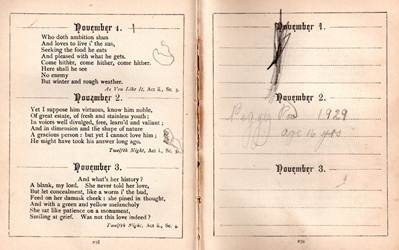 November 1.
Who doth ambition shun
And loves to live i' the sun,
Seeking the food he eats
And pleased with what he gets.
Come hither, come hither, come hither.
Here shall he see
No enemy
But winter and rough weather.
As You Like It, Act ii., Sc. 5.
November 2.
Yet I suppose him virtuous, know him noble,
Of great estate, of fresh and stainless youth;
In voices well divulged, free, learn'd and valiant;
And in dimension and the shape of nature
A gracious person: but yet I cannot love him;
He might have took his answer long ago.
Twelfth Night, Act i., Sc. 5.
November 3.
And what's her history?
A blank, my lord. She never told her love,
But let concealment, like a worm i' the bud,
Feed on her damask cheek: she pined in thought,
And with a green and yellow melancholy
She sat like patience on a monument,
Smiling at grief. Was not this love indeed?
Twelfth Night, Act ii., Sc. 4.
November 1.
November 2.
1929
age 16 yrs
November 3.